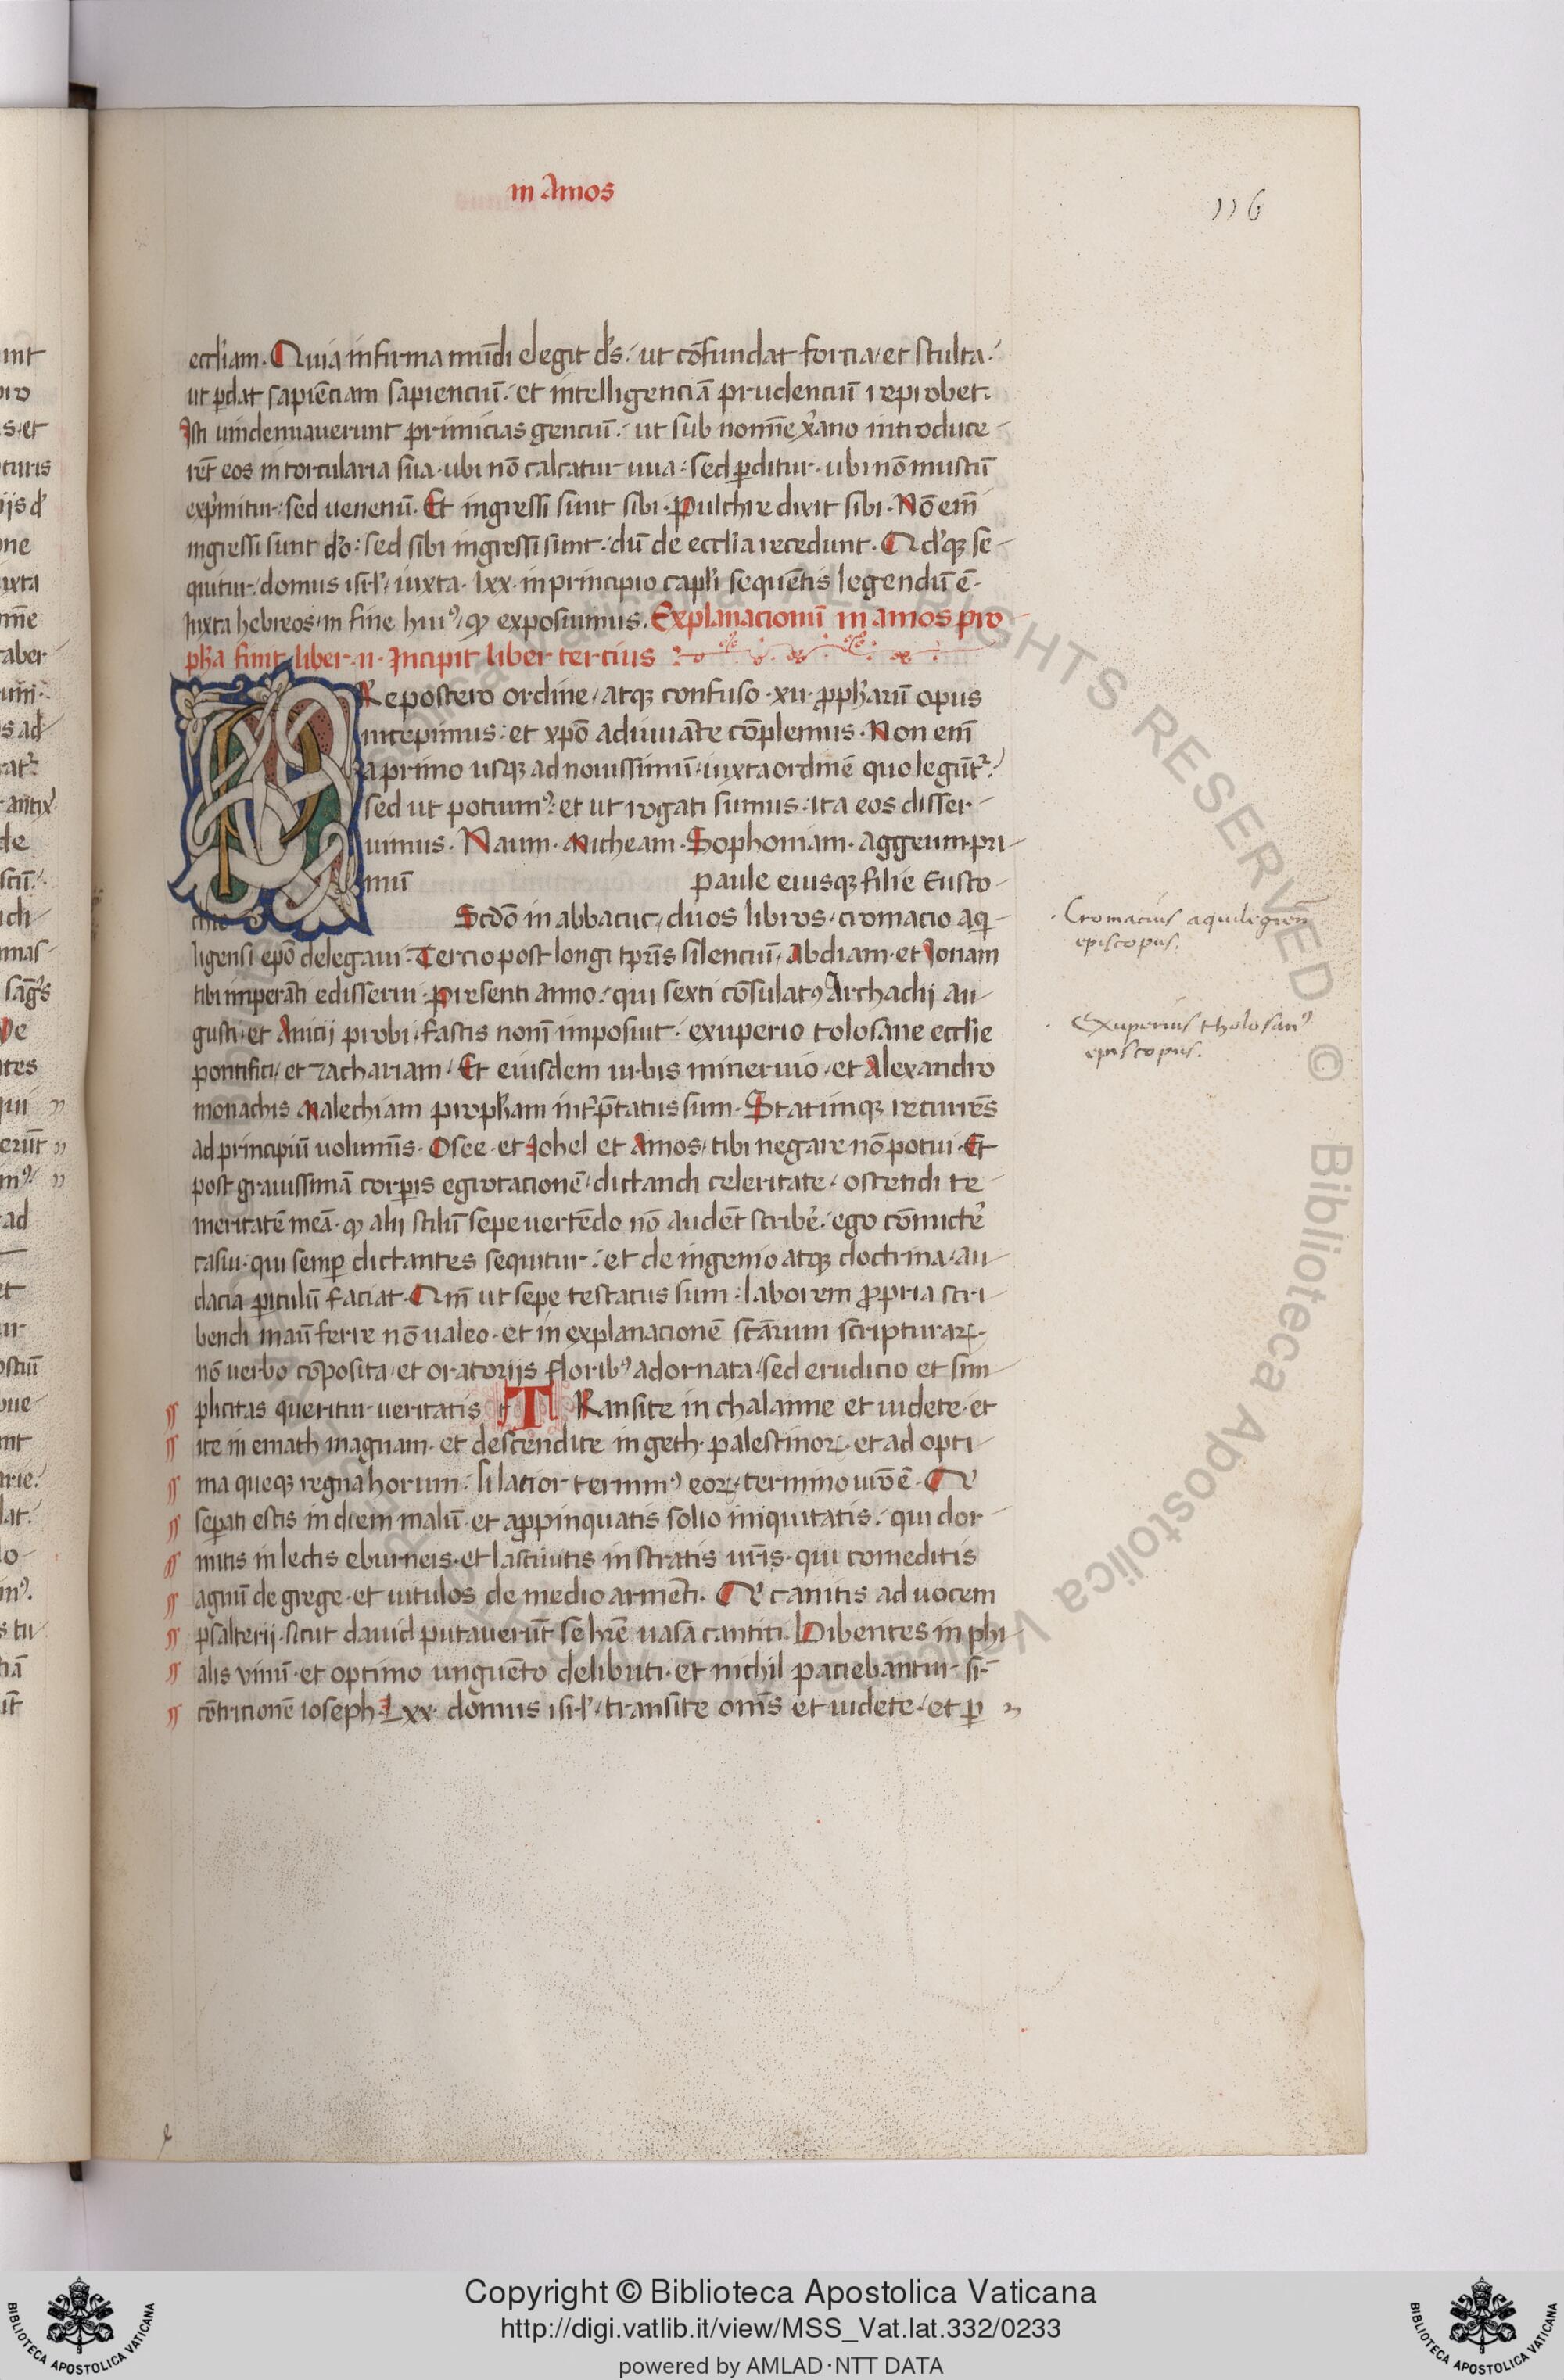 in Amos
116
eccl'iam. Quia infirma mūdi elegit d's. ut cōfundat fortia et stulta.
ut p̄dat sapiēciam sapienciū. et intelligenciā prudenciū reprobet.
Isti uindemiauerunt primicias genciū. ut sub nomīe xr̄ano introduce
rēt eos in torcularia sua. ubi nō calcatur uua. sed p̄ditur. ubi nō mustū
exp'mitur. sed uenenū. Et ingressi sunt sibi. Pulchre dixit sibi. Nō em̄
ingressi sunt d'o. sed sibi ingressi sunt. dū de eccl'ia recedunt. Qd'qȝ se
quitur. domus isr'l. iuxta. lxx. in principio capl'i sequētis legendū ē.
Iuxta hebreos in fine hui9 qd exposuimus. Explanacionū in amos pro
ph'a finit liber. ii. Incipit liber tercius
PRepostero ordine atqȝ confuso. xii. ꝓph'arū opus
incepimus. et xp̄o adiuuāte cōplemus. Non em̄
a primo usqȝ ad nouissimū iuxta ordinē quo legūtr.
sed ut potuim9. et ut rogati sumus. ita eos disser
uimus. Naum. Micheam. Sophoniam. aggeum. pri
mū paule eiusqȝ filie Eusto
chie Scd'o in abbacuc duos libros cromacio aq
ligensi ep̄o delegaui. Tercio post longi tp̄ris silenciū Abdiam et Ionam
tibi imperāti edisserui. presenti anno. qui sexti cōsulat9 Archadij au
gusti et Anicij probi. fastis nom̄ imposuit. exuperio tolosane eccl'ie
pontifici et zachariam. Et eiusdem urbis mineruio et Alexandro
monachis Malechiam proph'am int'p̄tatus sum. Statimqȝ recurrēs
ad principiū uolumīs. Osee et Iohel et Amos tibi negare nō potui. Et
post grauissimā corp̄is egrotacionē dictandi celeritate ostendi te
meritatē meā. qd alij stilū sepe uertēdo nō audēt scribe'. ego cōmicte'
casui. qui semp̄ dictantes sequitur. et de ingenio atqȝ doctrina au
dacia p̄iculū faciat. Qm̄ ut sepe testatus sum. laborem ꝓpria scri
bendi manū ferre nō ualeo. et in explanacionē sc̄arum scripturaꝝ
nō uerbo cōposita et oratorijs florib9 adornata sed erudicio et sim
plicitas queritur ueritatis TRansite in chalanne et uidete. et
ite in emath magnam. et descendite in geth. palestinoꝝ. et ad opti
ma queqȝ regna horum. si latior termin9 eoꝝ termino ur̄o ē. Qr
sep̄ati estis in diem malū. et aꝓpinquatis solio iniquitatis. qui dor
mitis in lectis eburneis. et lasciuitis in stratis ur̄is. qui comeditis
agnū de grege. et uitulos de medio armēti. Qr canitis ad uocem
psalterij. sicut dauid putauerūt se hr̄e uasa cantici. Bibentes in phi
alis vinū et optimo unguēto delibuti. et nichil paciebantur sr̄
cōtricionē ioseph. Lxx. domus isr'l transite om̄s et uidete et p̄
Cromacius aquilegien̄
episcopus.
Exuperius tholosan9
episcopus.
Copyright © Biblioteca Apostolica Vaticana
http://digi.vatlib.it/view/MSS_Vat.lat.332/0233
powered by AMLAD·NTT DATA
BIBLIOTECA APOSTOLICA VATICANA
BIBLIOTECA APOSTOLICA VATICANA